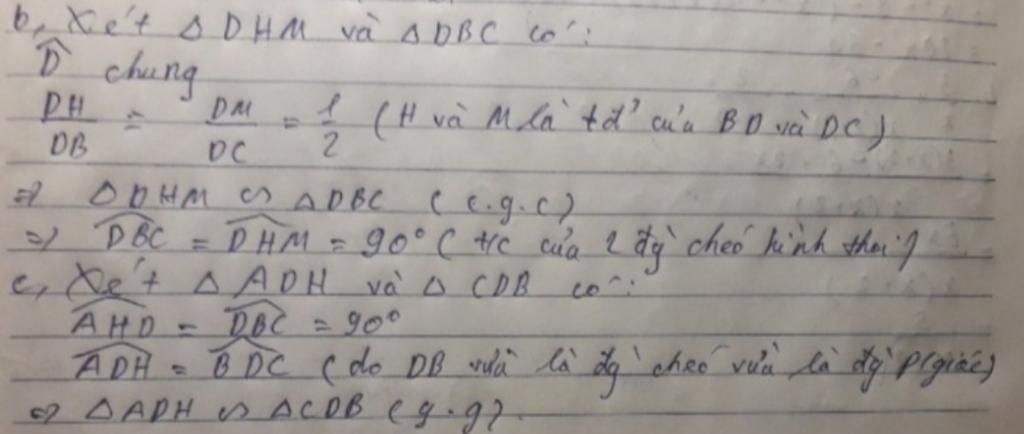 b, Xét △ DHM và △ DBC có:
D̂ chung
DH/DB = DM/DC = 1/2 (H và M là tđ' của BD và DC)
=> △ DHM ∽ △ DBC (c.g.c)
=> \widehat{DBC} = \widehat{DHM} = 90° (t/c của 2 đg` chéo hình thoi)
c, Xét △ ADH và △ CDB có:
\widehat{AHD} = \widehat{DBC} = 90°
\widehat{ADH} = \widehat{BDC} (do DB vừa là đg` chéo vừa là đg` p/giác)
=> △ ADH ∽ △ CDB (g.g).